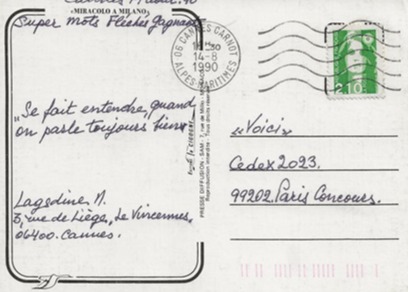 «MIRACOLO A MILANO»
Super Mots Fléchés gagnant
"Se fait entendre, quand
on parle toujours bien"
Lagodine, N.
3, rue de Liège, Le Vincennes,
06400. Cannes.
PRESSE DIFFUSION - SAM - 7, rue de Millo - MONACO
Reproduction interdite - Tous droits réservés
06 CANNES CARNOT
14-8
1990
ALPES-MARITIMES
2,10
«Voici»
Cedex 2023.
99202. Paris Concours.